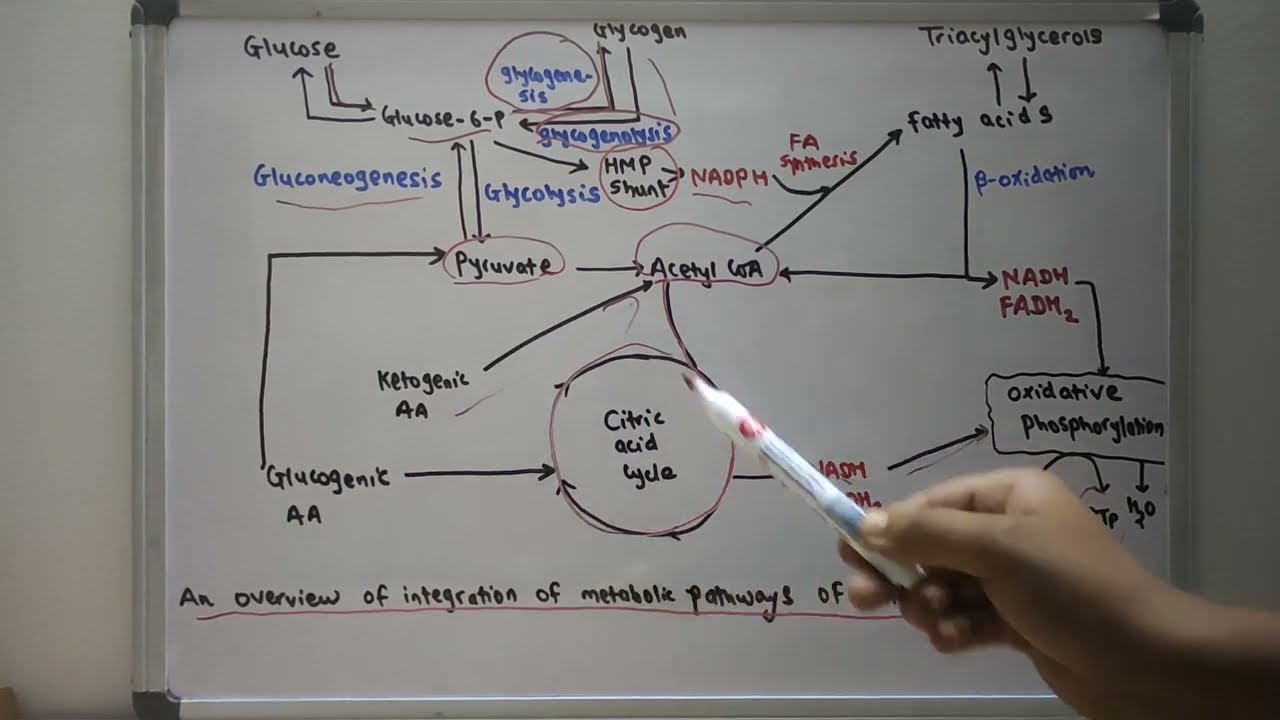 Glucose
Glycogen
Triacylglycerols
glycogene-
sis
Glucose-6-P
glycogenolysis
fatty acids
FA
synthesis
HMP
Shunt
NADPH
Gluconeogenesis
Glycolysis
β-oxidation
Pyruvate
Acetyl CoA
NADH
FADH2
Ketogenic
AA
Citric
acid
cycle
oxidative
phosphorylation
Glucogenic
AA
H2O
An overview of integration of metabolic pathways of